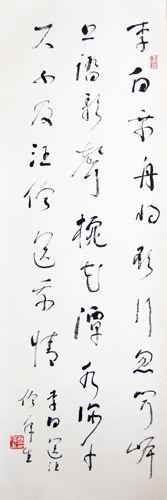 李白乘舟将欲行忽闻岸
上踏歌声桃花潭水深千
尺不及汪伦送我情
李白送汪
伦